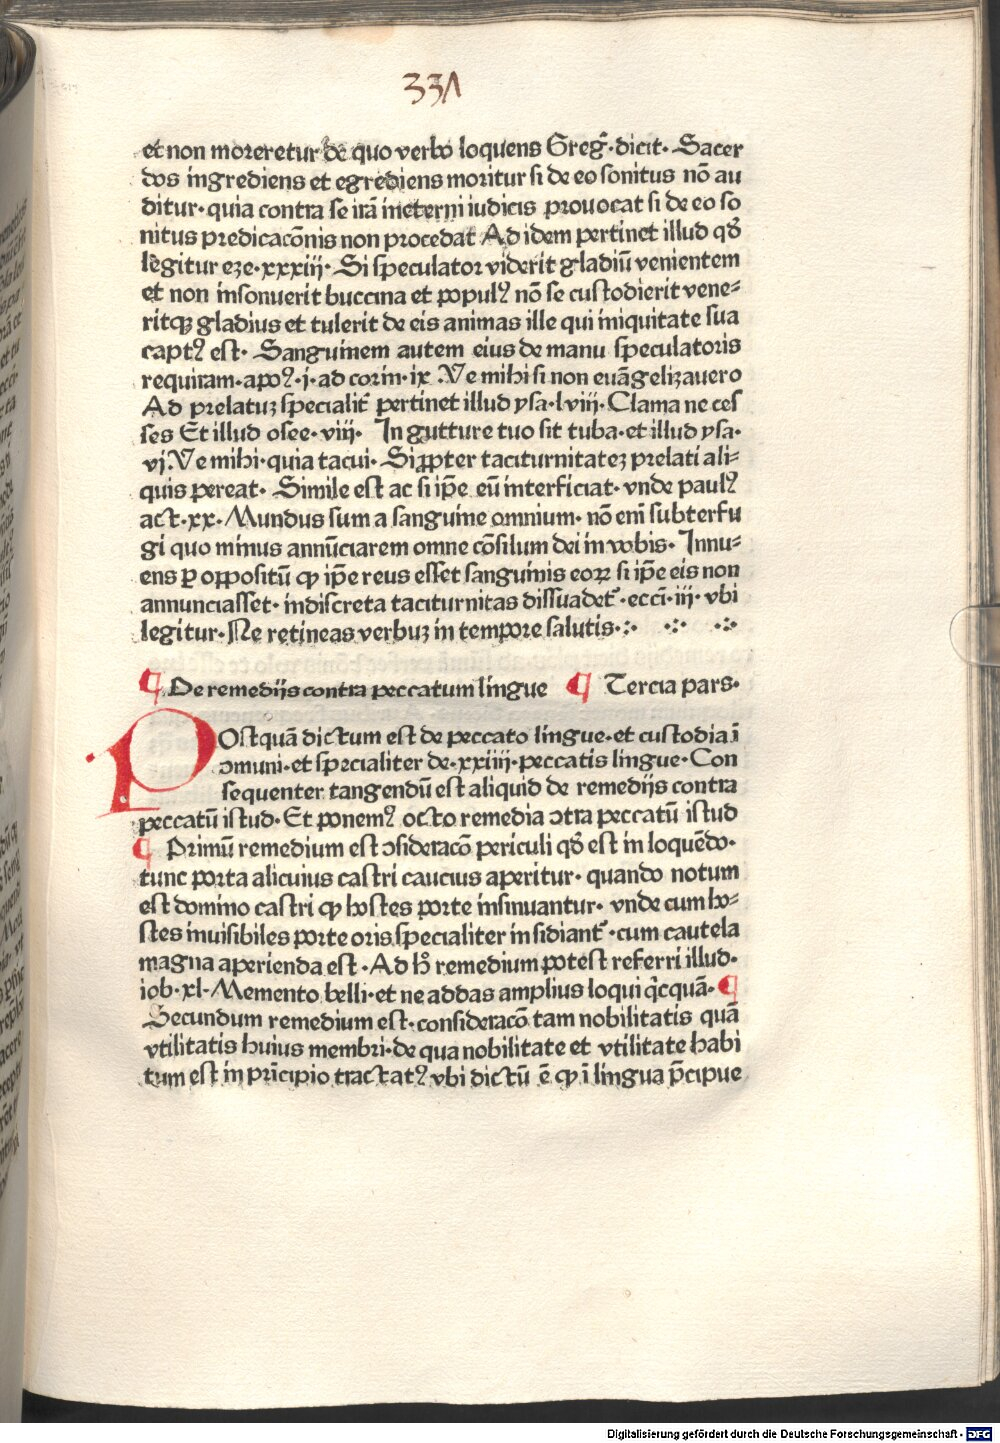 331
et non moreretur de quo verbo loquens Greg̃·dicit· Sacer
dos ingrediens et egrediens moritur si de eo sonitus nõ au
ditur·quia contra se irã ineterni iudicis provocat si de eo so
nitus predicacõnis non procedat Ad idem pertinet illud qď
legitur eze·xxxiij· Si speculator viderit gladiũ venientem
et non insonuerit buccina et populꝰ nõ se custodierit vene⸗
ritqꝫ gladius et tulerit de eis animas ille qui iniquitate sua
captꝰ est· Sanguinem autem eius de manu speculatoris
requiram·apoꝰ·j·ad corin·ix·Ve mihi si non euãgelizauero
Ad prelatuꝫ specialit̃ pertinet illud ysa·lviij·Clama ne ces
ses Et illud osee·viij· In gutture tuo sit tuba·et illud ysa·
vj·Ve mihi·quia tacui·Si ꝓpter taciturnitateꝫ prelati ali⸗
quis pereat· Simile est ac si ip̃e eũ interficiat·vnde paulꝰ
act·xx·Mundus sum a sanguine omnium·nõ eni subterfu
gi quo minus annũciarem omne cõsilum dei in vobis· Innu⸗
ens ꝑ oppositũ ꝙ ip̃e reus esset sanguinis eoꝝ si ip̃e eis non
annunciasset·indiscreta taciturnitas dissuadet̃·ecci·iij·vbi
legitur·Ne retineas verbuꝫ in tempore salutis·:· ·:· ·:·
¶ De remedijs contra peccatum lingue ¶ Tercia pars·
POstquã dictum est de peccato lingue·et custodia ĩ
ↄmuni·et specialiter de·xxiiij·peccatis lingue·Con
sequenter tangendũ est aliquid de remedijs contra
peccatũ istud·Et ponemꝰ octo remedia ↄtra peccatũ istud
¶ Primũ remedium est ↄsideracõ periculi qď est in loquẽdo·
tunc porta alicuius castri caucius aperitur·quando notum
est domino castri ꝙ hostes porte insinuantur·vnde cum ho⸗
stes inuisibiles porte oris specialiter insidiant̃·cum cautela
magna aperienda est·Ad h̃ remedium potest referri illud·
iob·xl·Memento belli·et ne addas amplius loqui q̃cquã·¶
Secundum remedium est·consideracõ tam nobilitatis quã
vtilitatis huius membri·de qua nobilitate et vtilitate habi
tum est in prĩcipio tractatꝰ vbi dictũ ẽ ꝙ ĩ lingua p̃cipue
Digitalisierung gefördert durch die Deutsche Forschungsgemeinschaft - DFG